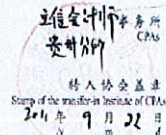 立信会计师事务所
CPAs
贵州分所
转入协会盖章
Stamp of the transfer-in Institute of CPAs
2011 年 9 月 22 日